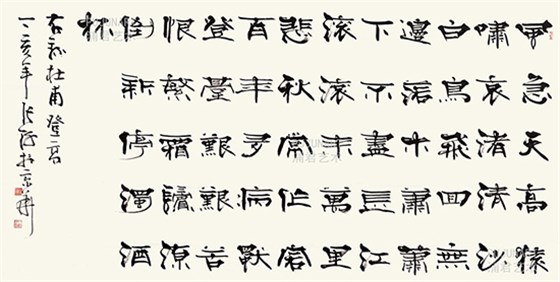 風急天高猿
嘯哀渚清沙
白鳥飛回無
邊落木蕭蕭
下不盡長江
滾滾来萬里
悲秋常作客
百年多病獨
登臺艱難苦
恨繁霜鬢潦
倒新停濁酒
杯
右錄杜甫登高
丁亥年於京華